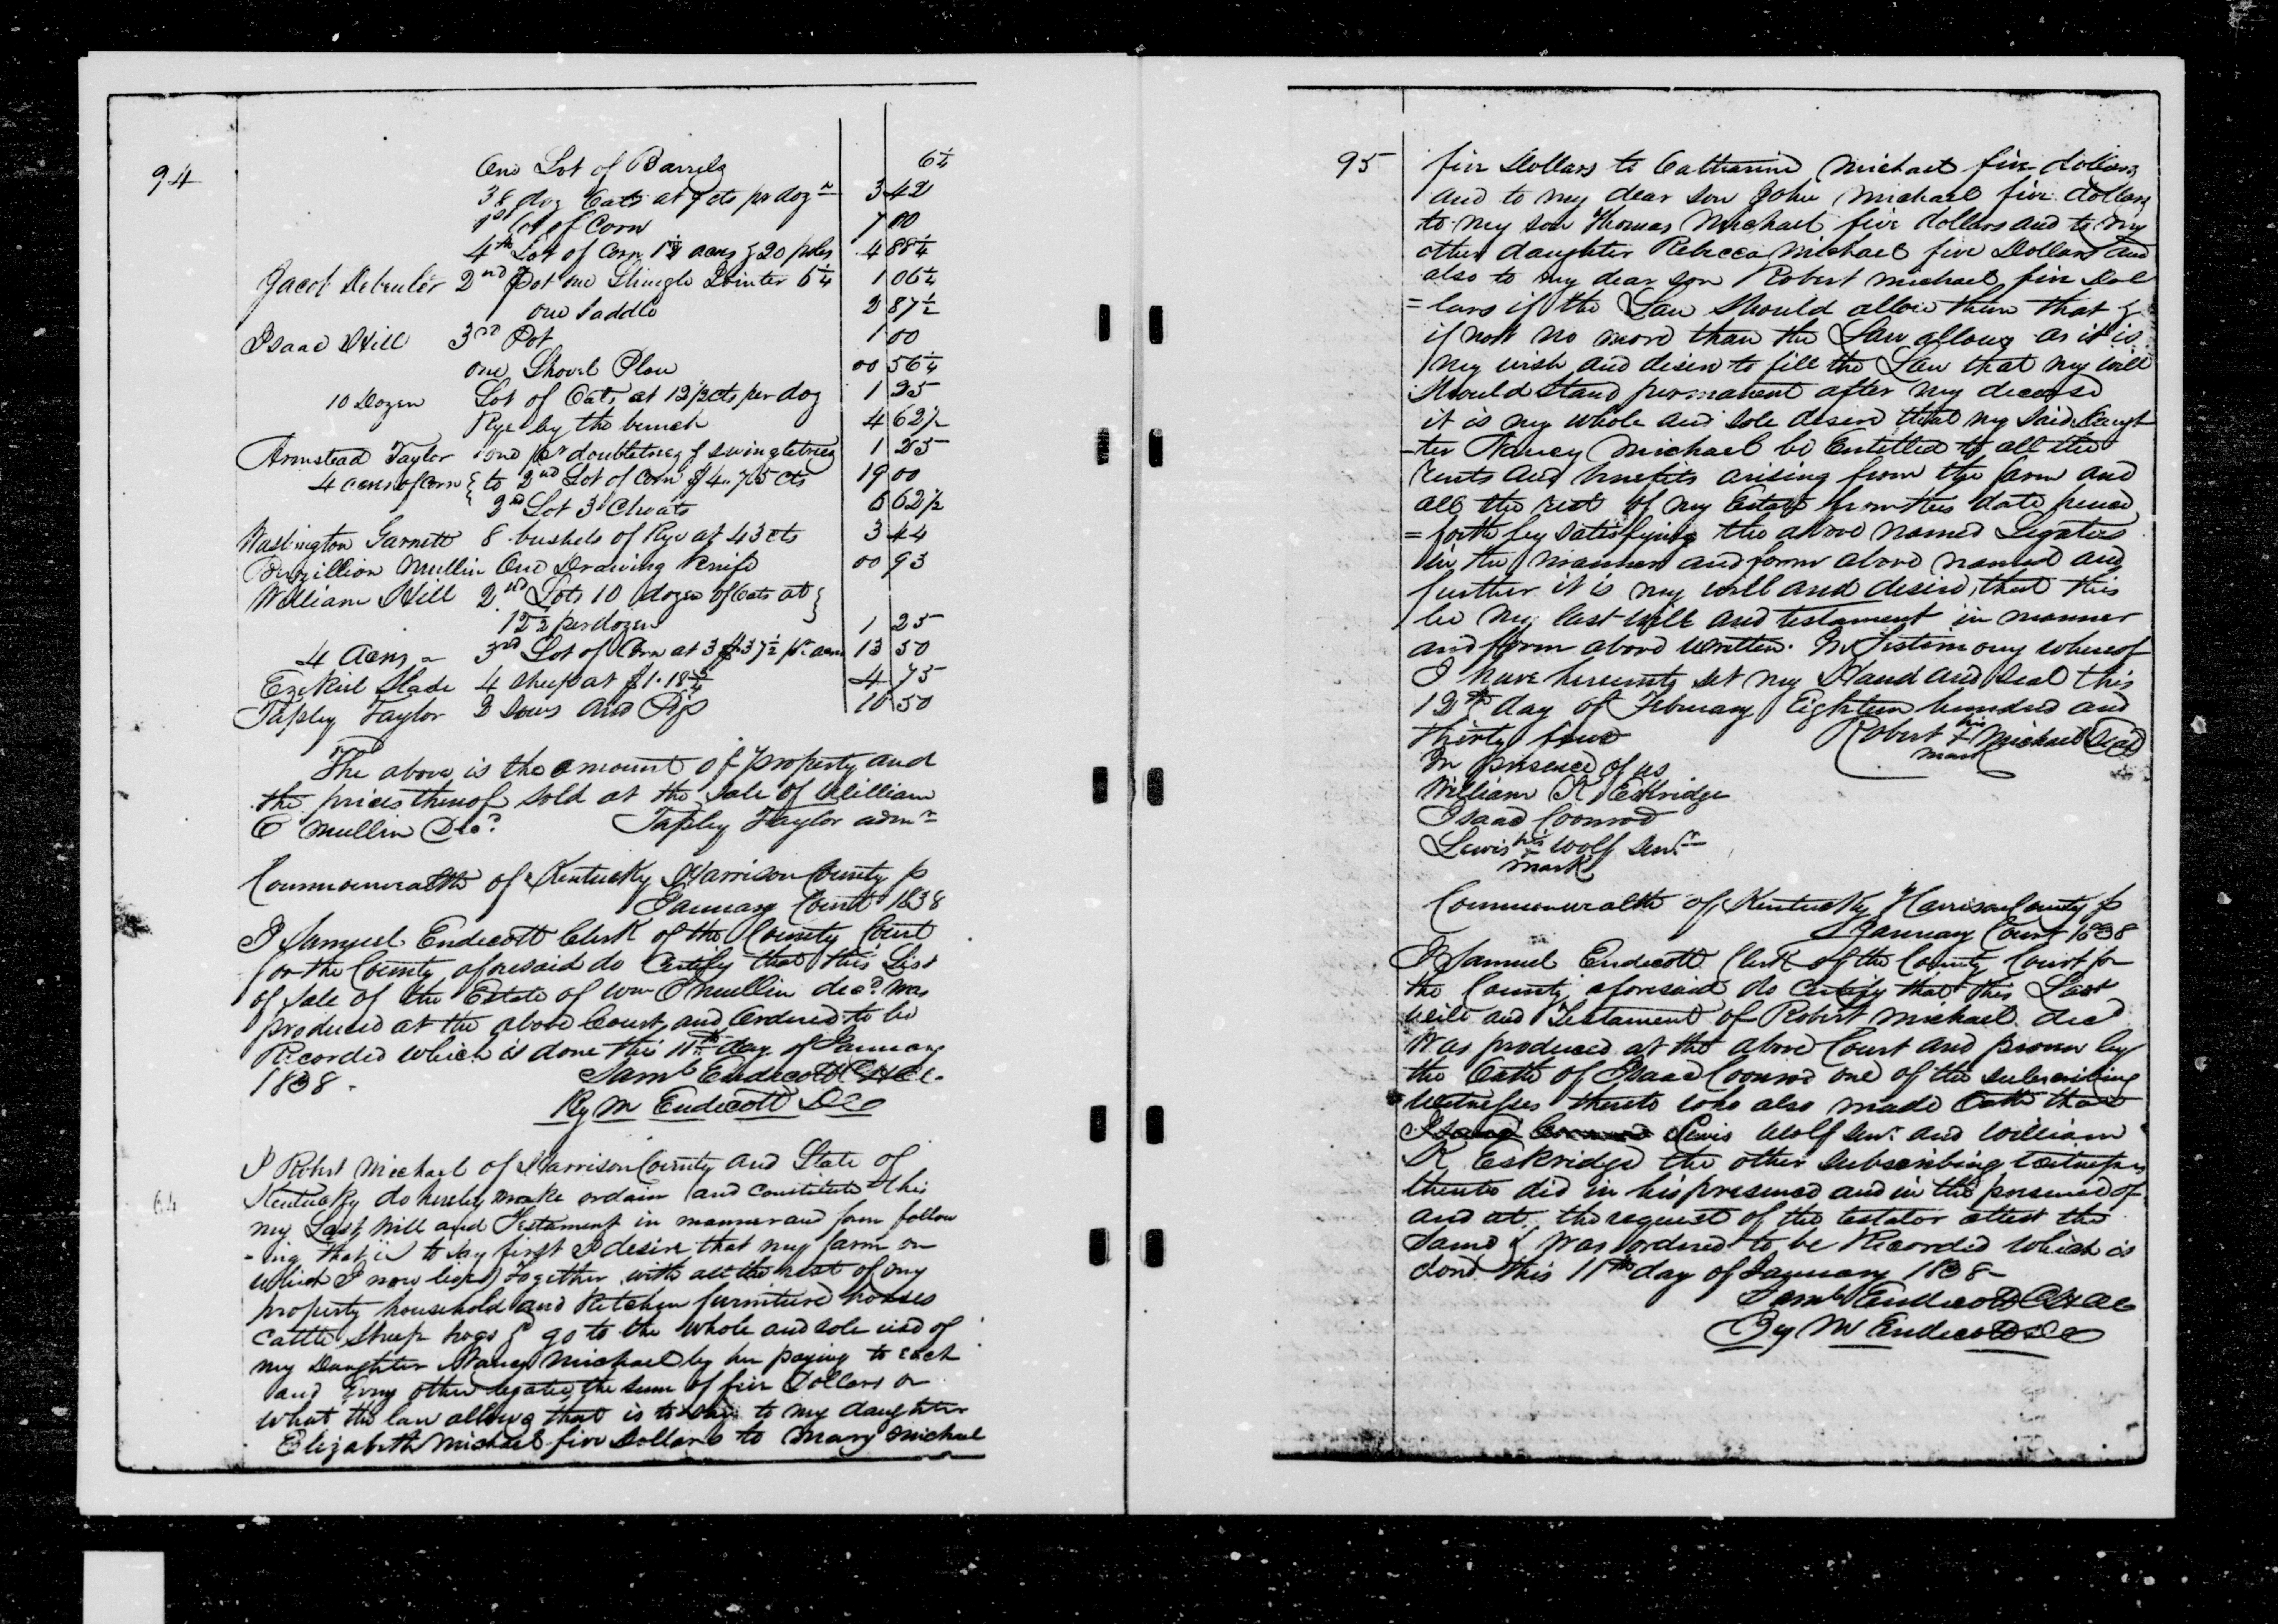 94
One Lot of Barrels 6¼
38 doz Oats at 9 cts pr dozn 3 42
1st Lot of Corn 7 00
4th Lot of Corn 1½ acres & 20 poles 4 88¼
Jacob 2nd Pot one Shingle 6¼ 1 06¼
one Saddle 2 87½
Isaac Hill 3rd Pot 1 00
one Shovel Plow 00 56¼
10 Dozen Lot of Oats at 12½cts per doz 1 25
Rye by the bunch 4 62½
Armstead Taylor one pr doubletrees & swingletrees 1 25
4 acres of corn } to 2nd Lot of Corn $4.75 cts 19 00
2nd Lot 3 Choats 6 62½
Washington Garnett 8 bushels of Rye at 43 cts 3 44
Mullin One Drawing Knife 00 93
William Hill 2nd Lots 10 dozen of Oats at }
12½ per dozen 1 25
4 Acres - 3rd Lot of Corn at 3$37½ pr acre 13 50
Ezekiel Slade 4 sheep at $1.18¾ 4 75
Tapley Taylor 2 Sows and Pigs 10 50
The above is the amount of property and
the prices thereof sold at the Sale of William
O Mullin Decd. Tapley Taylor admr
Commonwealth of Kentucky Harrison County ss
January Court 1838
I Samuel Endicott Clerk of the County Court
for the County aforesaid do Certify that this List
of Sale of the Estate of Wm O Mullin decd. was
produced at the above Court and Ordered to be
Recorded which is done this 11th day of January
1838 - Saml Endicott CHCC.
By M Endicott DC
64
I Robert Michael of Harrison County and State of
Kentucky do hereby make ordain and constitute this
my Last Will and Testament in manner and form follow
-ing that is to say first I desire that my farm on
which I now live together with all the rest of my
property household and Kitchen furniture horses
Cattle Sheep hogs & go to the whole and sole use of
my Daughter Nancy Michael by her paying to each
and Every other legatee the sum of five Dollars or
what the law allows that is to say to my daughter
Elizabeth Michael five Dollars to Mary Michael
95
five Dollars to Catharine Michael five dollars
and to my dear son John Michael five dollars
to my son Thomas Michael five dollars and to my
other daughter Rebecca Michael five Dollars and
also to my dear son Robert Michael five Dol
=lars if the Law should allow them that &
if not no more than the Law allows as it is
my wish and desire to fill the Law that my will
should stand permanent after my decease
it is my whole and sole desire that my said Daugh
-ter Nancy Michael be Entitled to all the
rents and benefits arising from the farm and
all the rest of my Estate from this date hence
=forth by satisfying the above named Legatees
in the manner and form above named and
further it is my will and desire that this
be my last will and testament in manner
and form above written. In Testimony whereof
I have hereunto set my Hand and Seal this
12th day of February Eighteen hundred and
Thirty four Robert his + mark Michael Seal
In presence of us
William K Eskridge
Isaac Coonrod
Lewis his + mark Wolf Senr
Commonwealth of Kentucky Harrison County ss
January Court 1838
I Samuel Endicott Clerk of the County Court for
the County aforesaid do Certify that this Last
will and Testament of Robert Michael decd
was produced at the above Court and proven by
the Oath of Isaac Coonrod one of the subscribing
witnesses thereto who also made Oath that
Isaac Coonrod Lewis Wolf Senr. and William
K Eskridge the other subscribing witnesses
thereto did in his presence and in the presence of
and at the request of the testator attest the
Same & was ordered to be Recorded which is
done this 11th day of January 1838 -
Saml Endicott CHCC
By M Endicott DC